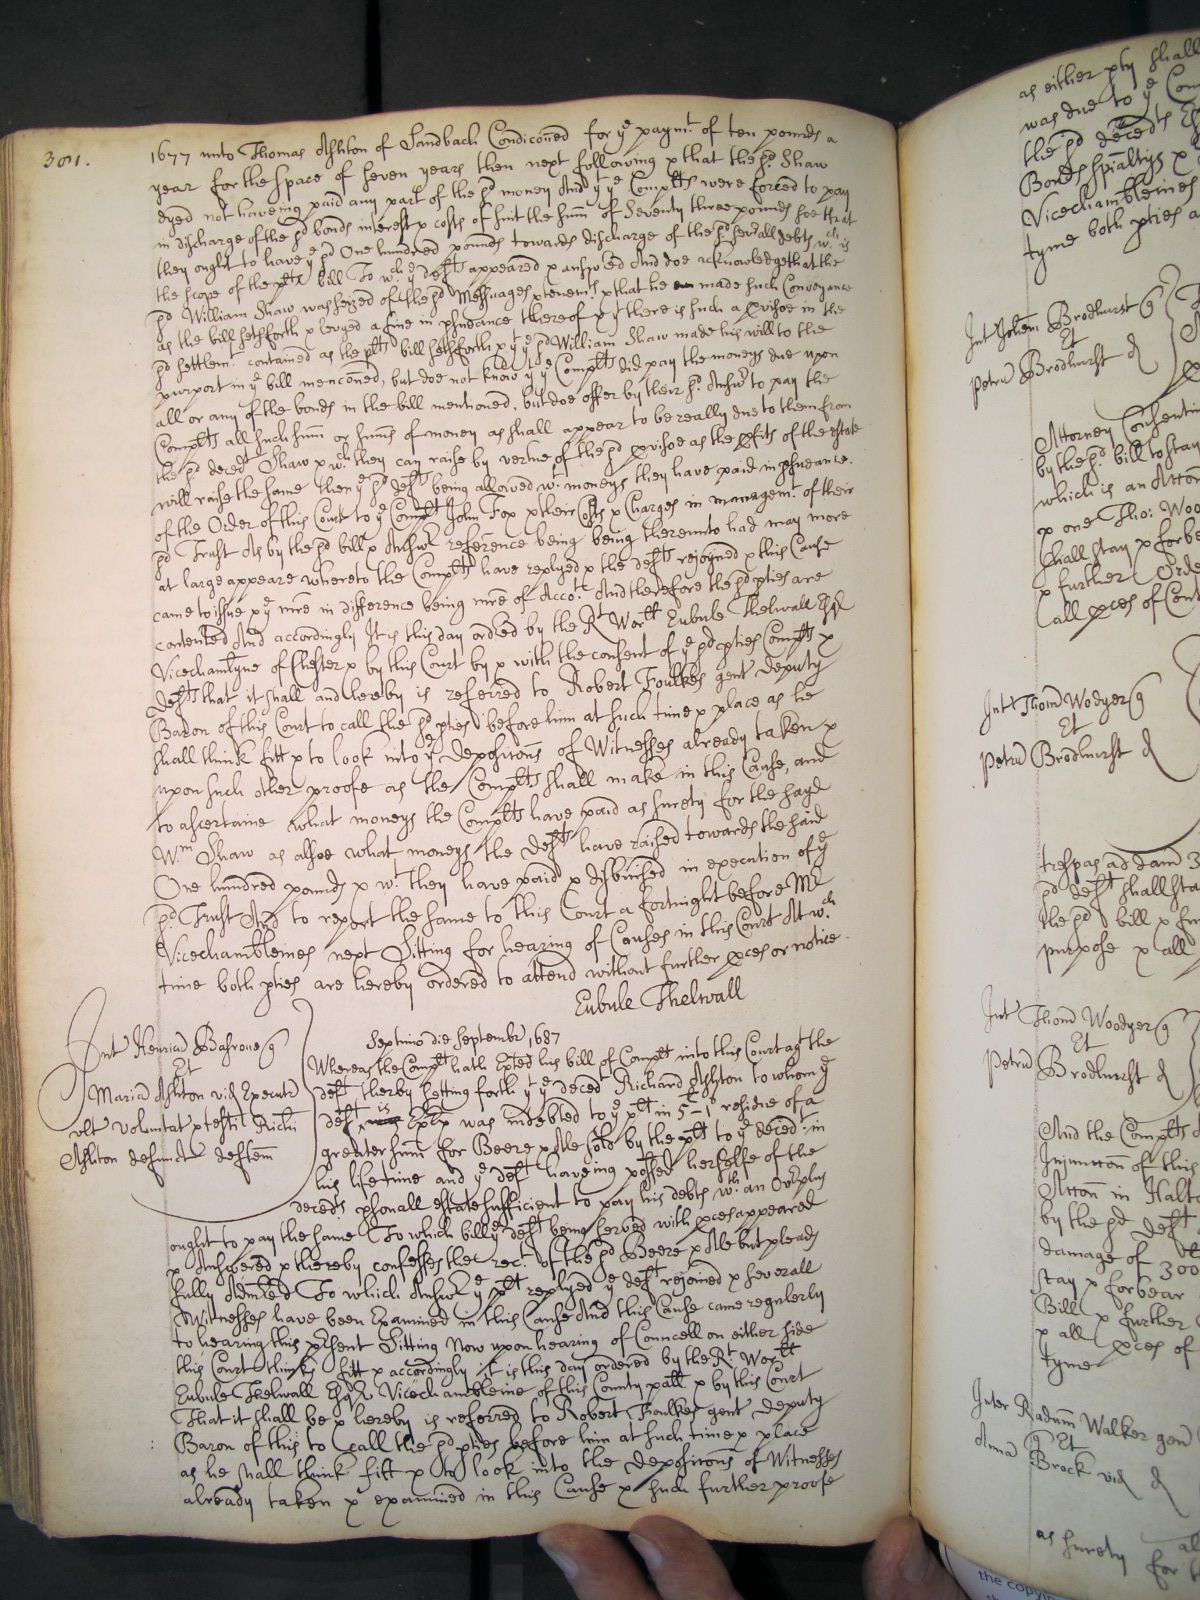 301.
1677 unto Thomas Ashton of Sandbach Condiconed for ye paymt. of ten pounds a
year for the space of seven years then next following & that the sd. Shaw
dyed not haveing paid any part of the sd money And yt ye Complts were forced to pay
in discharge of the sd bonds interest & costs of suit the sum of Seventy three pounds soe that
they ought to have ye sd One hundred pounds towards discharge of the sd severall debts wch. is
the scope of the plts bill To wch ye defts appeared & answered And doe acknowledge that the
sd William Shaw was seized of the sd Messuages & tenemts. & that he made such Conveyance
as the bill setts forth & levyed a fine in psuance thereof & yt there is such a pvisoe in the
sd settlemt. contained as the plts bill setts forth & yt ye sd William Shaw made his will to the
purport in ye bill menconed, but doe not know yt ye Complts did pay the moneys due upon
all or any of the bonds in the bill mentioned, but doe offer by their sd. Answr to pay the
Complts all such sum or sums of money as shall appear to be really due to them from
the sd decedt Shaw & wch. they can raise by vertue of the sd pvisoe as the pfits of the estate
will raise the same then ye sd defts being allowed wt. moneys they have paid in psuance
of the Order of this Court to ye Complt John Fox & their costs & Charges in managemt. of their
sd Trust As by the sd bill & Answr reference being being thereunto had may more
at large appeare whereto the Complts have replyed & the defts rejoyned & this Cause
came to issue & ye mre in difference being mre of Accot. And therefore the sd pties are
contented And accordingly It is this day ordred by the Rt Worll Eubule Thelwall Esqr
Vicechamblyne of Chester & by this Court by & with the consent of ye sd pties Complts &
defts that it shall and hereby is referred to Robert Foulkes gent deputy
Baron of this Court to call the sd pties before him at such time & place as he
shall think fitt & to look into ye depositons of Witnesses already taken &
upon such other proofe as the Complts shall make in this Cause, and
to ascertaine what moneys the Complts have paid as surety for the sayd
Wm. Shaw as alsoe what moneys the defts have raised towards the said
One hundred pounds & wt. they have paid & disbursed in execution of ye
sd. Trust And to report the same to this Court a fortnight before Mr
Vicechambleines next Sitting for hearing of Causes in this Court At wch.
time both pties are hereby ordered to attend without further pces or notice.
Eubule Thelwall
Septimo die Septembr 1687
Int Henricu Basrone q
Et
Maria Ashton vid Executr
ult voluntat & testi Richi
Ashton defunct deftem
Whereas the Complt hath Exted his bill of Complt into this Court agt the
deft therby setting forth yt ye decedt Richard Ashton to whom ye
deft is Exex was indebted to ye plt in 5-1d residue of a
greater sum for Beere & Ale sold by the plt to ye decedt. in
his life time and ye deft haveing possed herselfe of the
decedts psonall estate sufficient to pay his debts wth. an Overplus
ought to pay the same To which bill ye deft being served with pces appeared
& Answered & thereby confesses the rect. of the sd Beere & Ale but pleads
fully Admted To which Answr ye plt replyed ye deft rejoined & severall
Witnesses have been Examined in this Cause And this Cause came regulerly
to hearing this psent Sitting Now upon hearing of Councell on either side
this Court thinks fitt & accordingly it is this day ordered by the Rt Worll
Eubule Thelwall Esqr Vicechambleine of this County pall & by this Court
That it shall be & hereby is referred to Robert Foulkes gent deputy
Baron of this to call the sd pties before him at such time & place
as he shall think fitt & to look into the depositons of Witnesses
already taken & examined in this Cause & such further proofe
as either pty shall
was due to ye Com
the sd decedts
Bonds spialtys &
Vicechambleines
tyme both pties a
Int Johem Brodhurst q
Et
Petru Brodhurst d
Attorney Consenti
by the sd. bill to stay
which is an Attor
& one Tho: Woo
shall stay & forbe
& further Orde
Call pces of Cont
Int Thom Wodyer q
Et
Petru Brodhurst d
trespas ad dam 3
sd deft shall sta
the sd bill & fur
purpose & all
Int Thom Woodyer q
Et
Petru Brodhurst d
And the Complts
Injunction of this
Atton in Halto
by the sd deft
damage of 300
stay & forbear
Bill & further
& all pces of
tyme
Inter Radum Walker gen
Et
Anna Brock vid d
as surety
for
the copyin